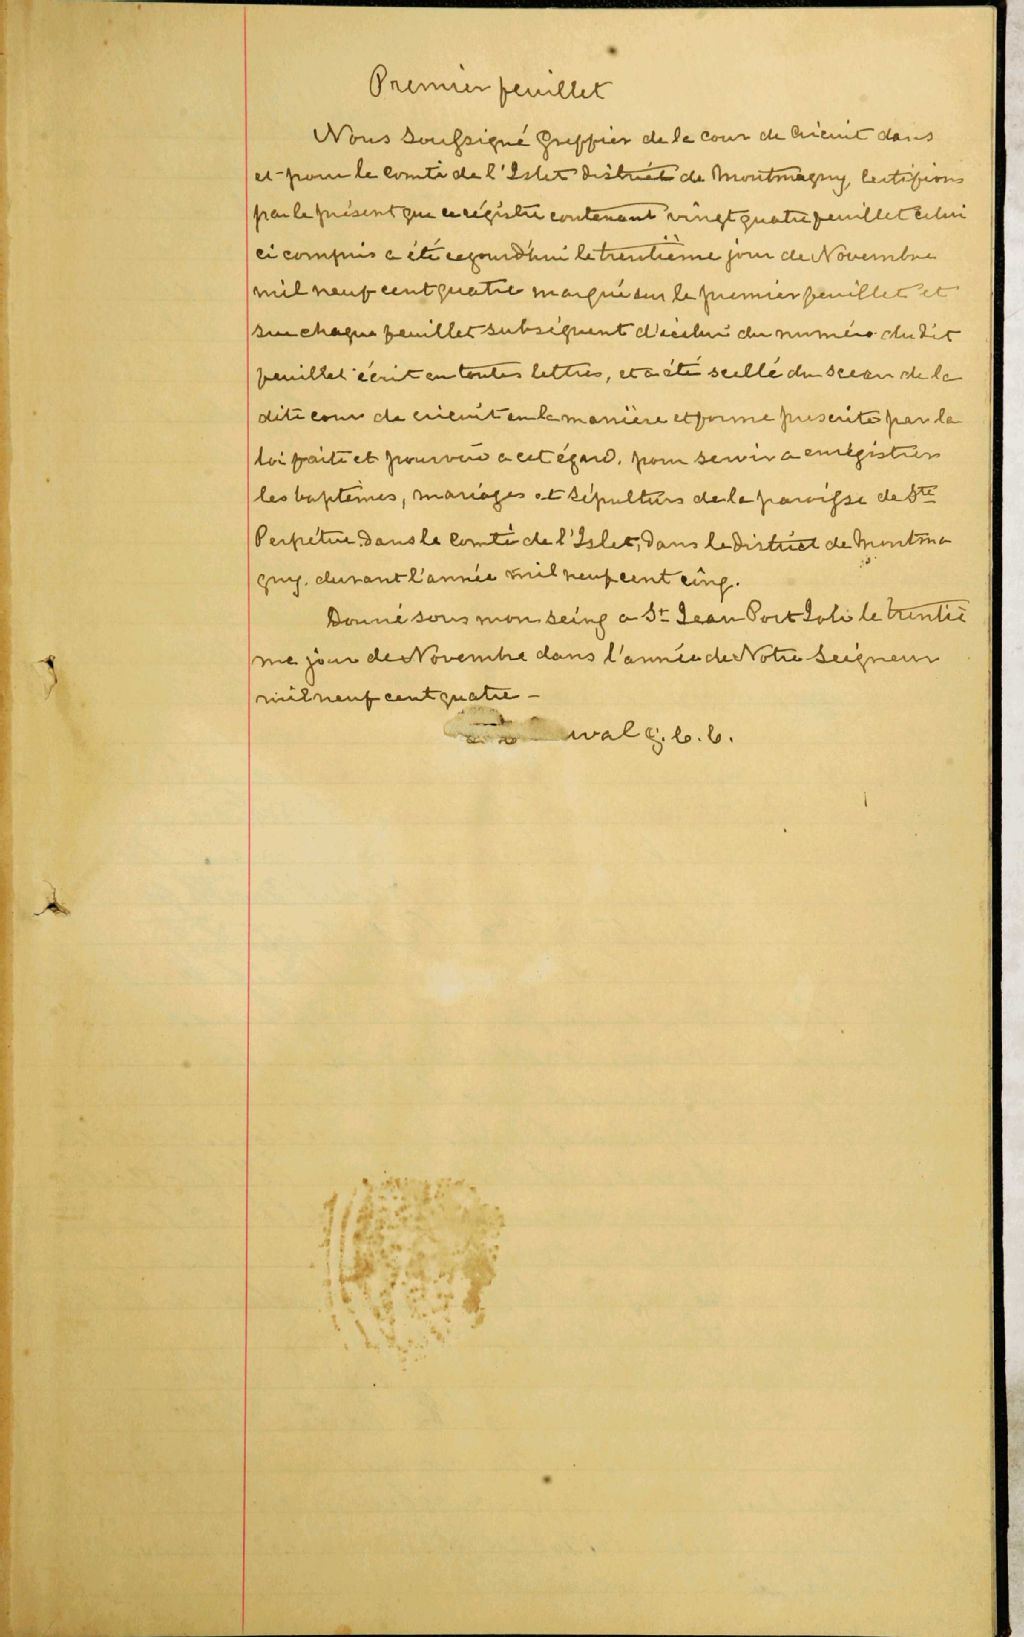 Premier feuillet
Nous soussigné Greffier de la cour de circuit dans
et pour le comté de l'Islet district de Montmagny, certifions
par le présent que ce régistre contenant vingt quatre feuillet celui
ci compris a été cejourd'hui le trentième jour de Novembre
mil neuf cent quatre marqué sur le premier feuillet et
sur chaque feuillet subséquent d'icelui du numéro du dit
feuillet écrit en toutes lettres, et a été scellé du sceau de la
dite cour de circuit en la manière et forme prescrite par la
loi faite et pourvue a cet égard, pour servir a enrégistrer
les baptêmes, mariages et sépultures de la paroisse de Ste
Perpétue dans le comté de l'Islet, dans le district de Montma
gny. durant l'année mil neuf cent cinq.
Donné sous mon seing a St Jean Port Joli le trentiè
me jour de Novembre dans l'année de Notre Seigneur
mil neuf cent quatre –
uval g. c. c.